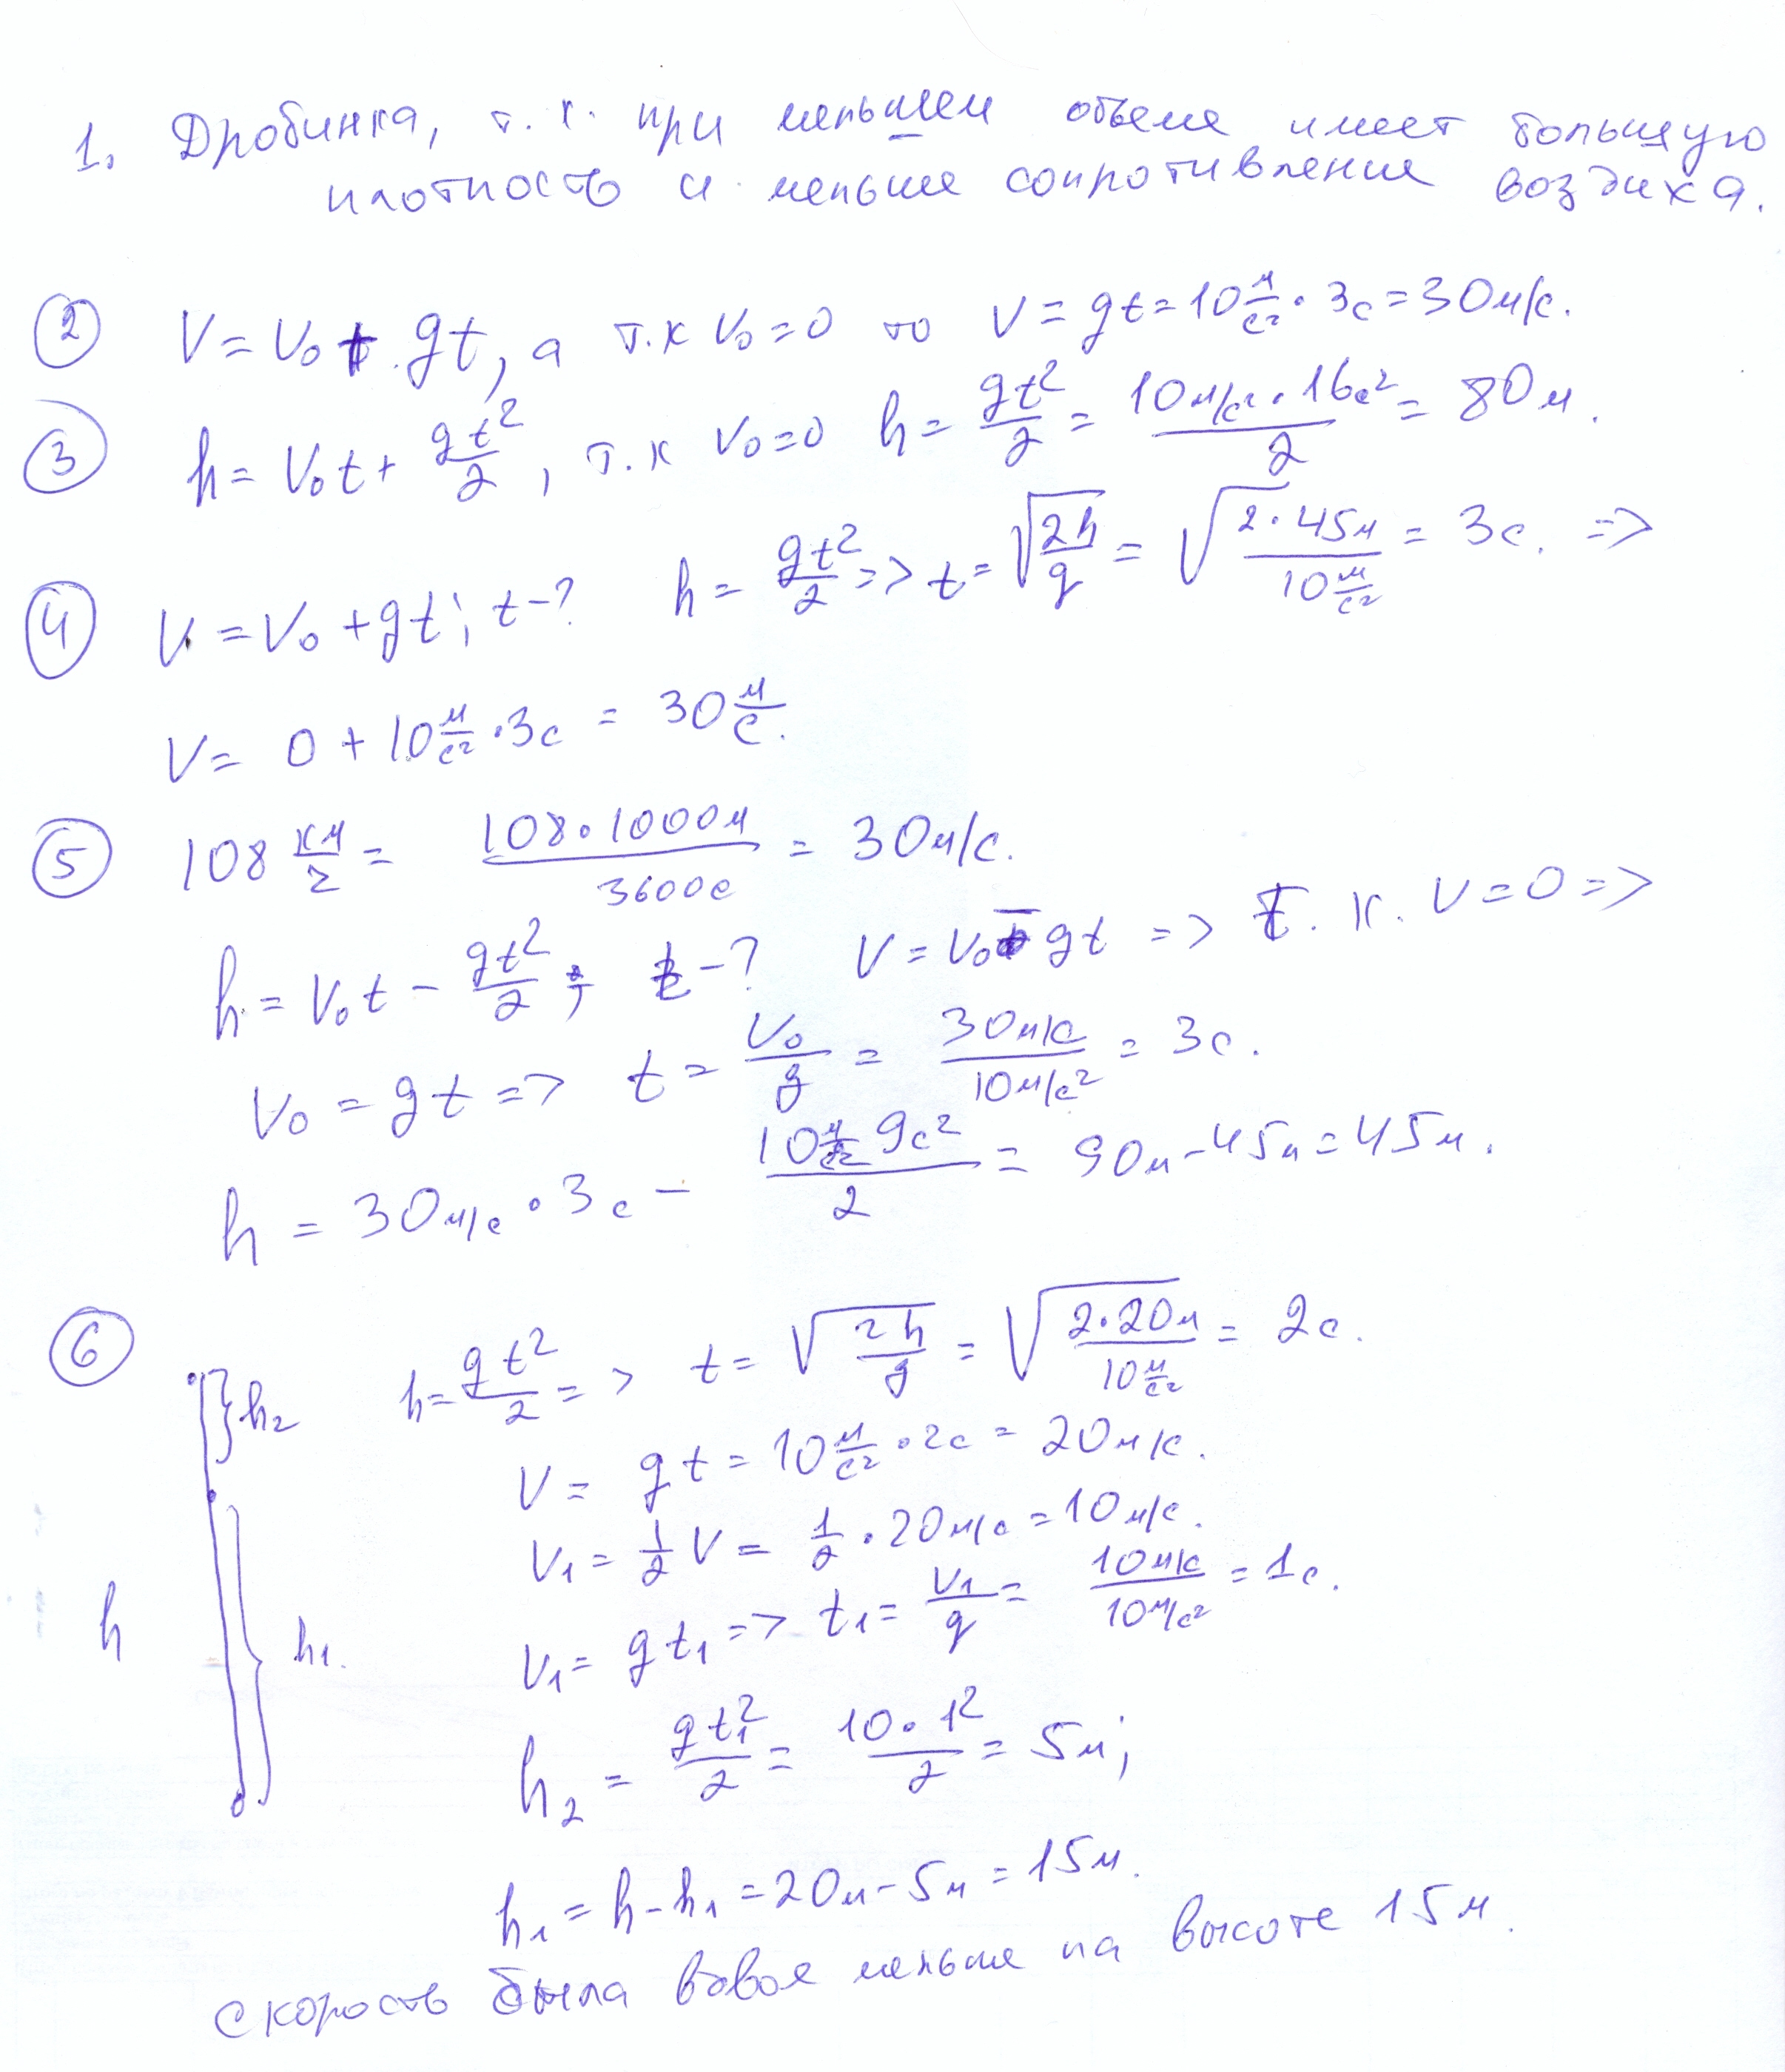 1. Дробинка, т.к. при меньшем объеме имеет большую
плотность и меньше сопротивление воздуха.
② V = V₀ + gt, а т.к V₀ = 0 то V = gt = 10 м/с² · 3с = 30 м/с.
③ h = V₀t + gt²/2, т.к V₀ = 0 h = gt²/2 = 10м/с² · 16с²/2 = 80м.
④ V = V₀ + gt; t - ? h = gt²/2 => t = √(2h/g) = √(2·45м/10 м/с²) = 3с. =>
V = 0 + 10 м/с² · 3с = 30 м/с.
⑤ 108 км/г = 108·1000м/3600с = 30м/с.
h = V₀t - gt²/2; t - ? V = V₀ - gt => т.к. V = 0 =>
V₀ = gt => t = V₀/g = 30м/с / 10м/с² = 3с.
h = 30м/с · 3с - 10 м/с² 9с²/2 = 90м - 45м = 45м.
⑥ h = gt²/2 => t = √(2h/g) = √(2·20м/10 м/с²) = 2с.
h₂
V = gt = 10 м/с² · 2с = 20м/с.
V₁ = 1/2 V = 1/2 · 20м/с = 10м/с.
h h₁. V₁ = gt₁ => t₁ = V₁/g = 10м/с / 10м/с² = 1с.
h₂ = gt₁²/2 = 10·1²/2 = 5м;
h₁ = h - h₁ = 20м - 5м = 15м.
скорость была вдвое меньше на высоте 15м.